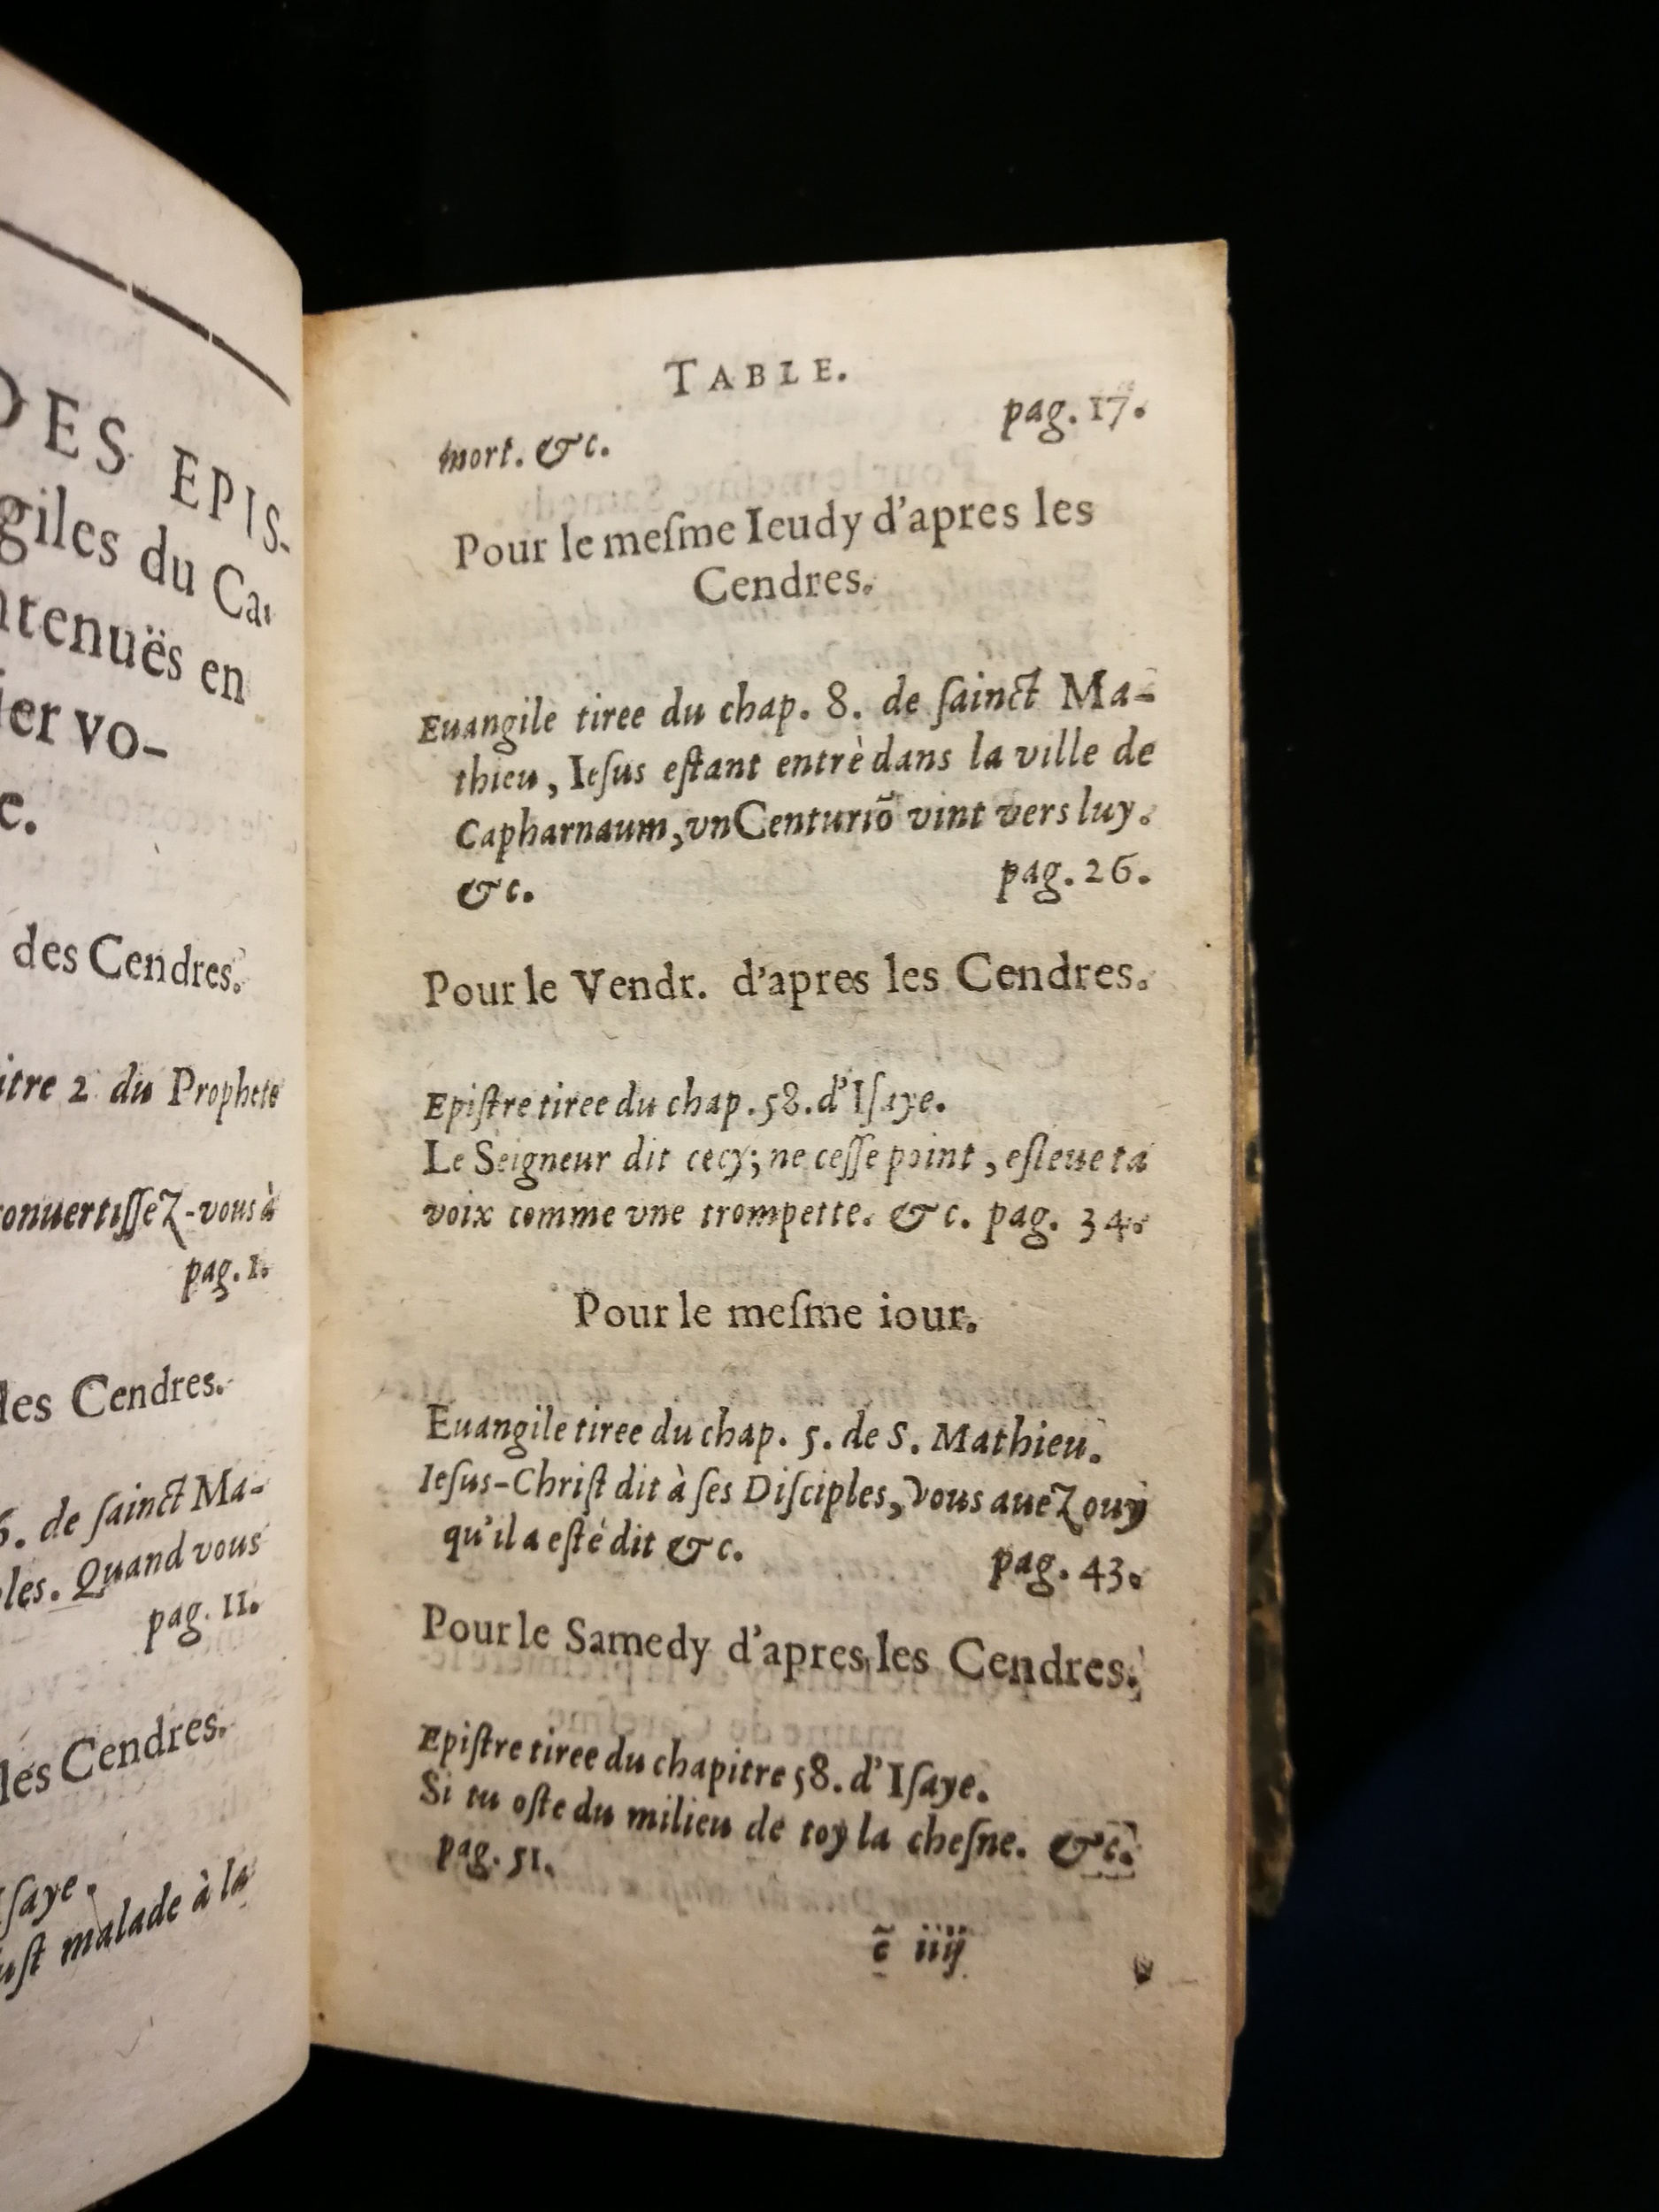 DES EPIS-
giles du Ca
ntenuës en
ier vo-
e.
des Cendres.
itre 2 du Prophete
onuertiſſez-vous à
pag. 1.
les Cendres.
6. de ſainct Ma-
ples. Quand vous
pag. 11.
les Cendres.
Iſaye.
uſt malade à la
TABLE.
mort. &c. pag. 17.
Pour le meſme Ieudy d'apres les
Cendres.
Euangile tiree du chap. 8. de ſainct Ma-
thieu, Ieſus eſtant entrè dans la ville de
Capharnaum, vn Centuriõ vint vers luy.
&c. pag. 26.
Pour le Vendr. d'apres les Cendres.
Epiſtre tiree du chap. 58. d'Iſaye.
Le Seigneur dit cecy; ne ceſſe point, eſleue ta
voix comme vne trompette. &c. pag. 34.
Pour le meſme iour.
Euangile tiree du chap. 5. de S. Mathieu.
Ieſus-Chriſt dit à ſes Diſciples, Vous auez ouy
qu'il a eſté dit &c. pag. 43.
Pour le Samedy d'apres les Cendres.
Epiſtre tiree du chapitre 58. d'Iſaye.
Si tu oſte du milieu de toy la cheſne. &c.
pag. 51.
ẽ iiij